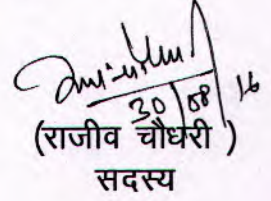 30/08/16
(राजीव चौधरी )
सदस्य